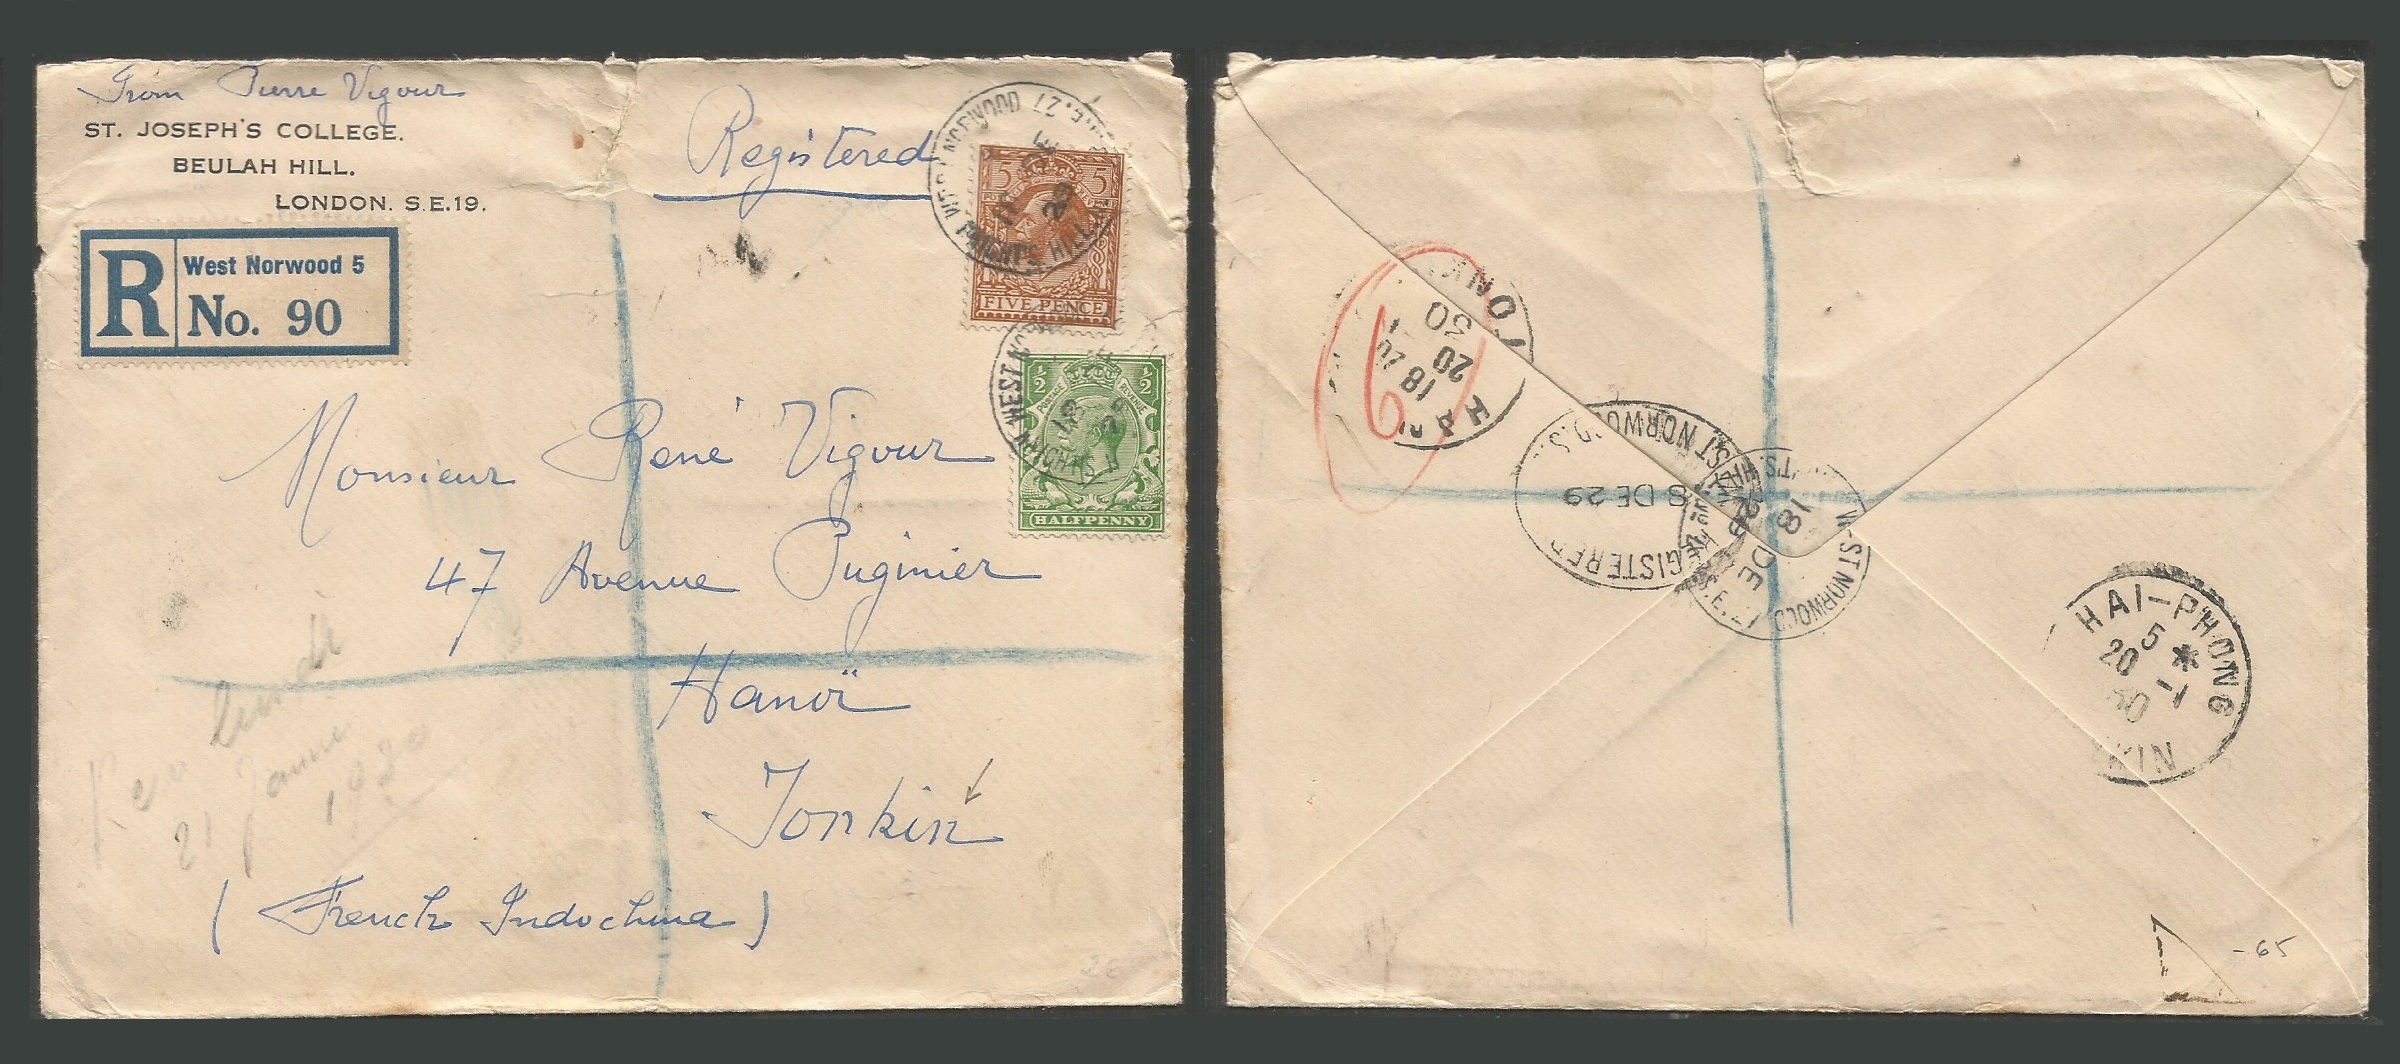 From Pierre Vigour
ST. JOSEPH'S COLLEGE.
BEULAH HILL.
LONDON. S.E.19.
Registered
R
West Norwood 5
No. 90
WEST NORWOOD
KNIGHTS HILL
5 5
FIVE PENCE
WEST NO
KNIGHTS
½ ½
POSTAGE REVENUE
HALFPENNY
Monsieur René Vigour
47 Avenue Puginier
Hanoï
Tonkin
(French Indochina)
lundi
21 Janvier
1930
TONK
18
20
30
REGISTERED
WEST NORWOOD
8 DE 29
WEST NORWOOD
18 DE
S.E.27
HAI-PHONG
5 *
20 -1
30
KIN
-65